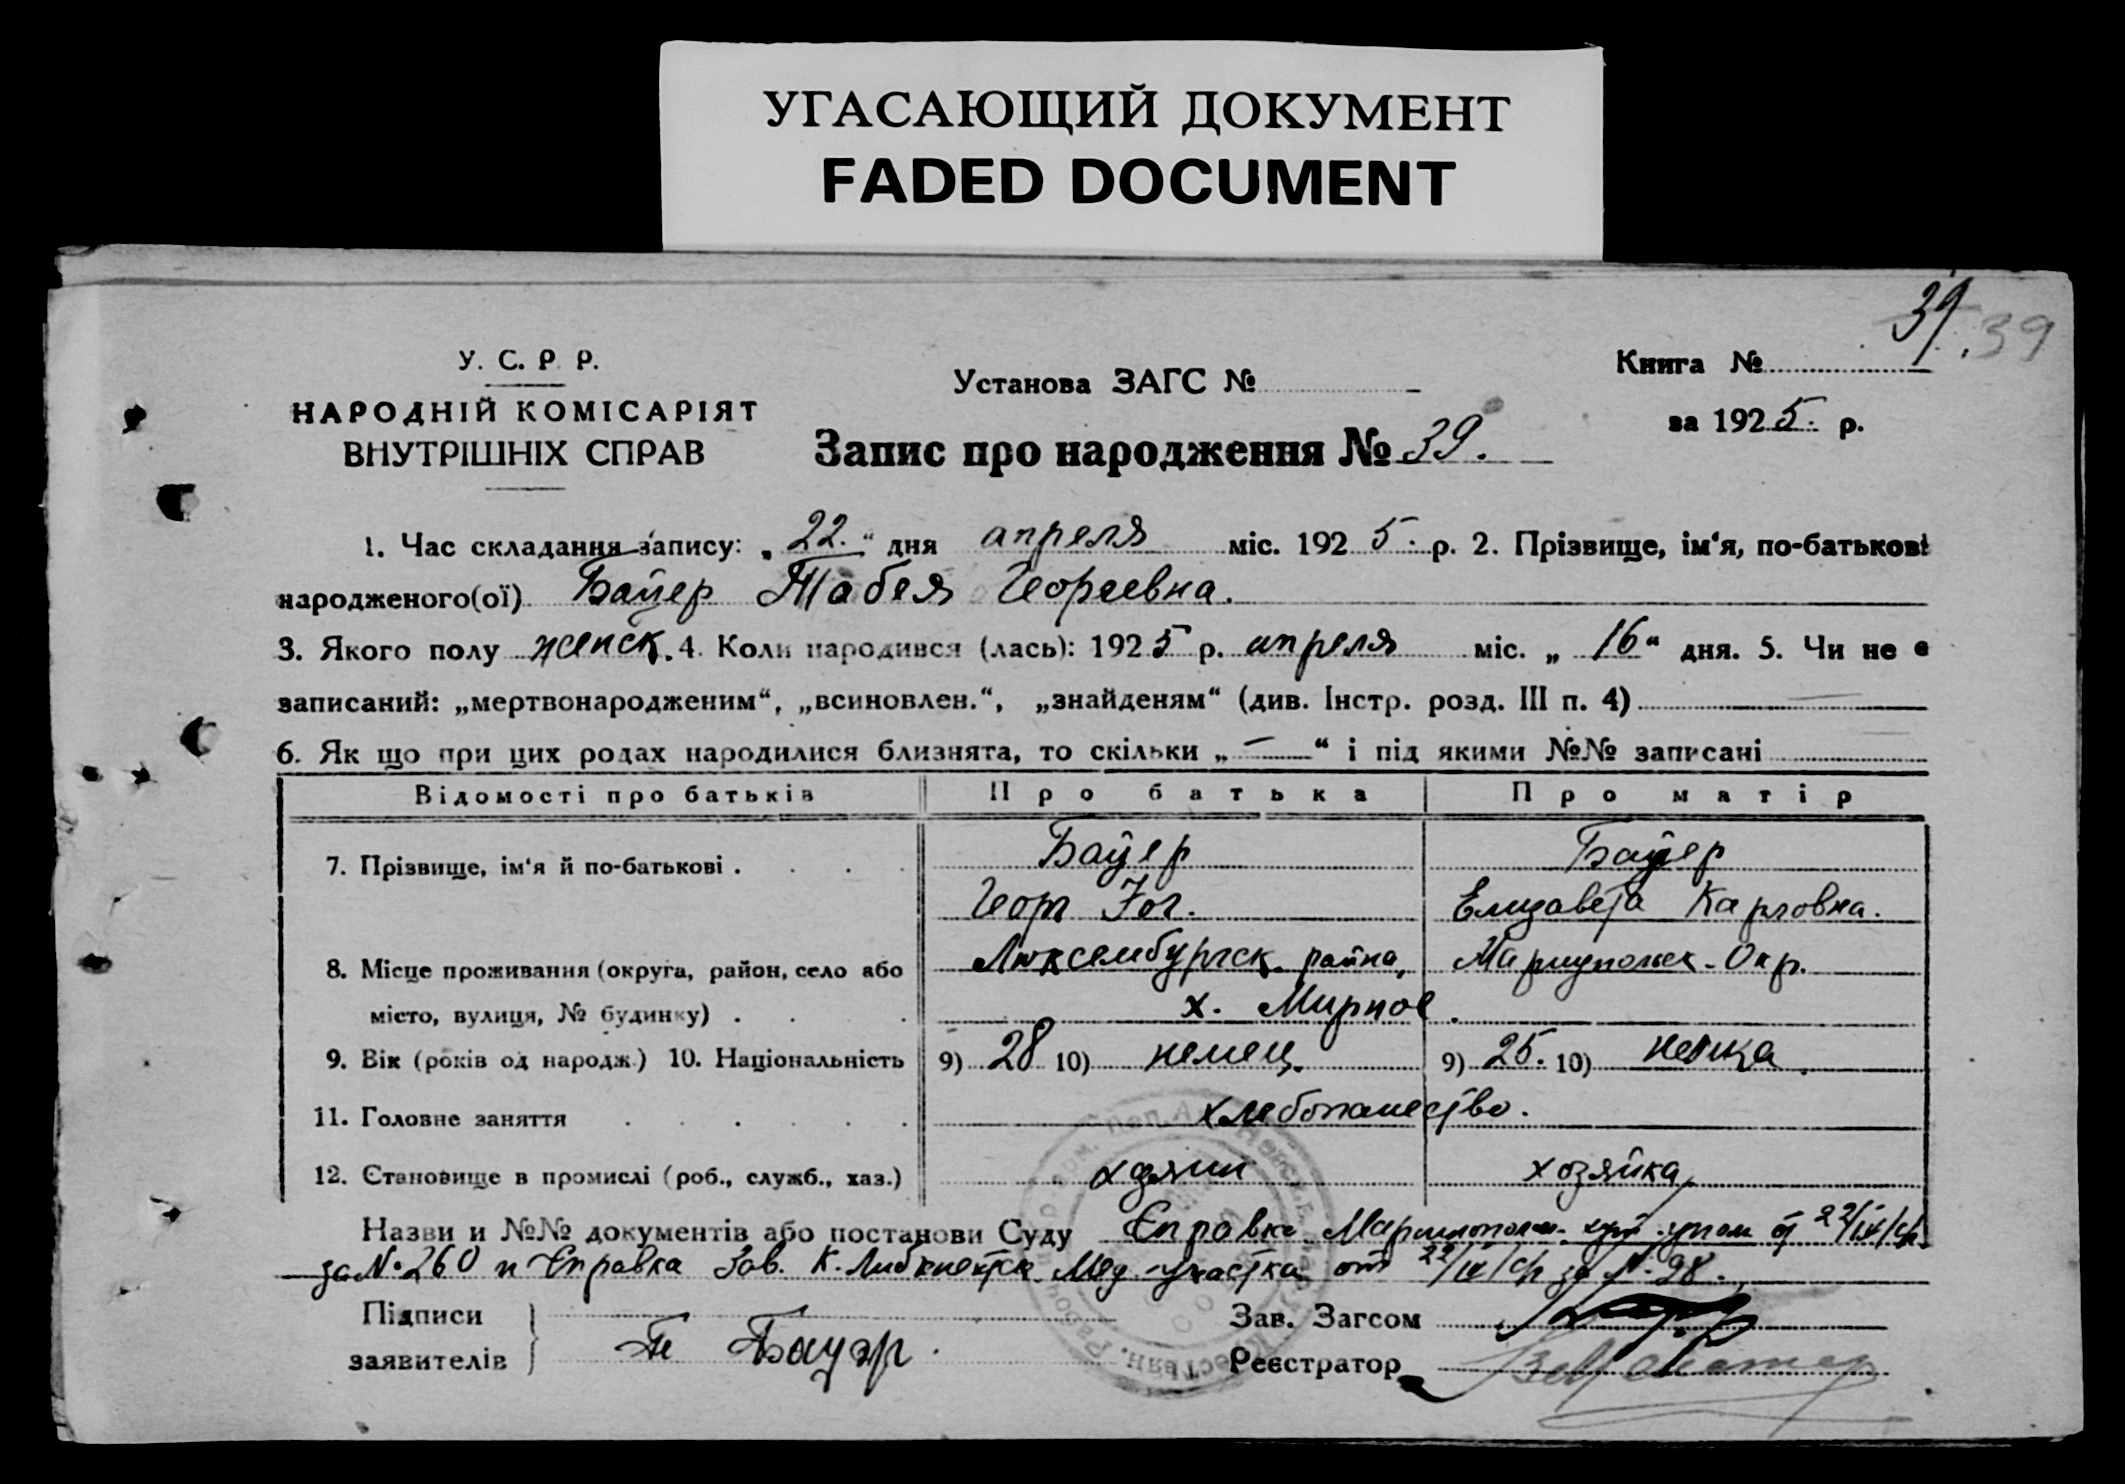 УГАСАЮЩИЙ ДОКУМЕНТ
FADED DOCUMENT
39 .39
У. С. Р. Р.
НАРОДНІЙ КОМІСАРІЯТ
ВНУТРІШНІХ СПРАВ
Установа ЗАГС №
Запис про народження № 39.
Книга №
за 1925. р.
1. Час складання запису: „22.“ дня апреля міс. 1925. р. 2. Прізвище, ім‘я, по-батькові
народженого(ої) Бауер Табея Георгевна.
3. Якого полу женск. 4. Коли народився (лась): 1925 р. апреля міс. „16“ дня. 5. Чи не є
записаний: „мертвонародженим“, „всиновлен.“, „знайденям“ (див. Інстр. розд. III п. 4)
6. Як що при цих родах народилися близнята, то скільки „—“ і під якими №№ записані
Відомості про батьків Про батька Про матір
7. Прізвище, ім‘я й по-батькові . Бауер Бауер
Георг Гог. Елизавета Карловна.
8. Місце проживання (округа, район, село або Люксембургск. района, Мариупольск. Окр.
місто, вулиця, № будинку) . х. Мирное.
9. Вік (років од народж.) 10. Національність 9) 28 10) немец. 9) 25. 10) немка.
11. Головне заняття хлебопашество.
12. Становище в промислі (роб., служб., хаз.) хозяин хозяйка
Назви и №№ документів або постанови Суду Справка 22/IV/ср
за №260 и Справка Зав. К. Либкнехтск. Мед-участка от 22/IV/ср за №.98.
Підписи
заявителів Бауэр.
Зав. Загсом
Реєстратор